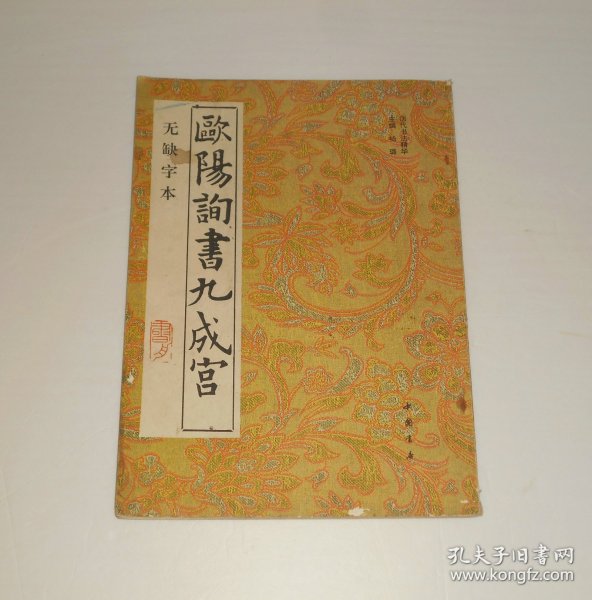 歐陽詢書九成宫
无缺字本
中国书店
孔夫子旧书网
www.kongfz.com